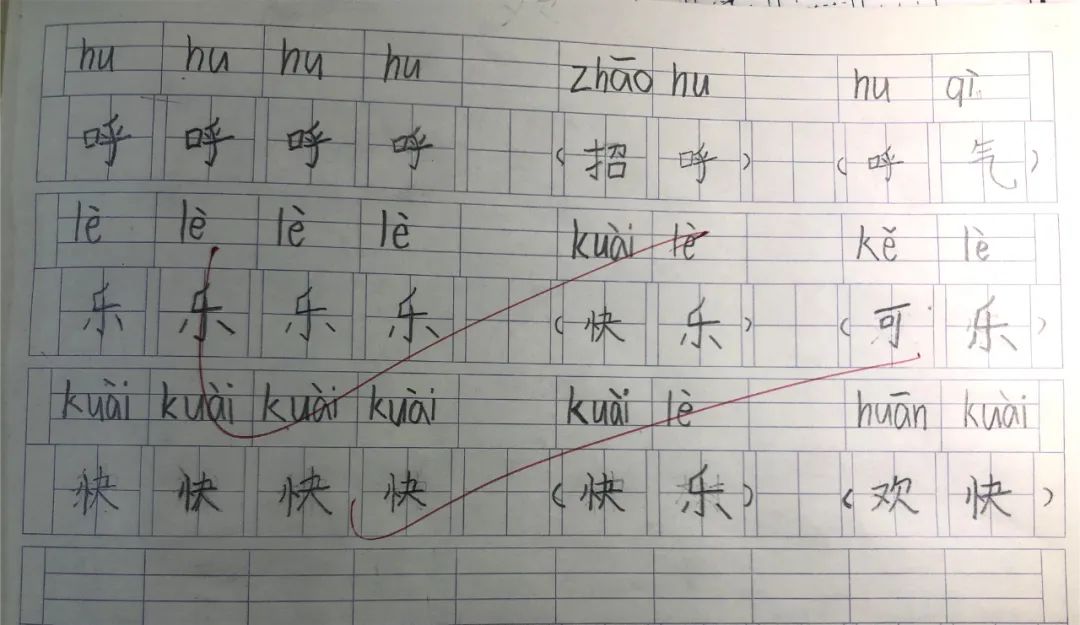 hu hu hu hu zhāo hu hu qì
呼 呼 呼 呼 (招 呼) (呼 气)
lè lè lè lè kuài lè kě lè
乐 乐 乐 乐 (快 乐) (可 乐)
kuài kuài kuài kuài kuài lè huān kuài
快 快 快 快 (快 乐) (欢 快)